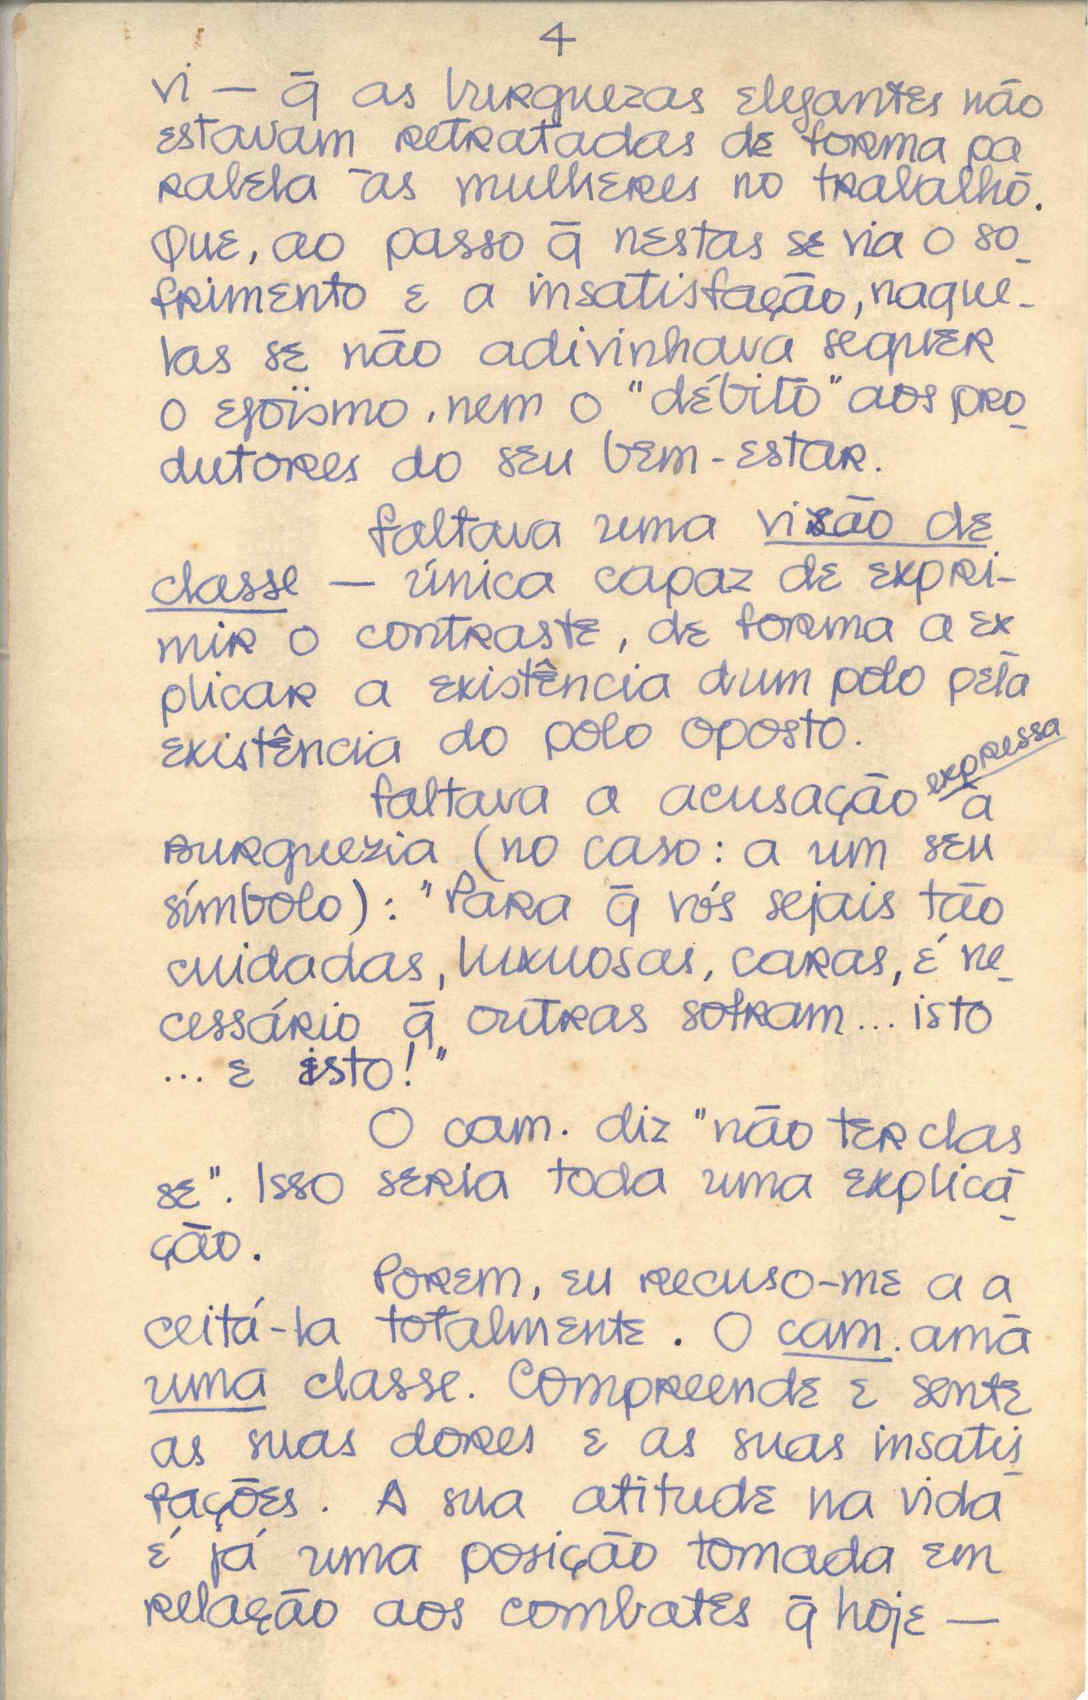 4
vi — q̄ as burguezas elegantes não
estavam retratadas de forma pa
ralela às mulheres no trabalho.
Que, ao passo q̄ nestas se via o so-
frimento e a insatisfação, naque-
las se não adivinhava sequer
o egoïsmo, nem o "débito" aos pro-
dutores do seu bem-estar.
Faltava uma visão de
classe — única capaz de expri-
mir o contraste, de forma a ex
plicar a existência dum polo pela
existência do polo oposto.
expressa
Faltava a acusação à
Burguezia (no caso: a um seu
símbolo): "Para q̄ vós sejais tão
cuidadas, luxuosas, caras, é ne-
cessário q̄ outras sofram... isto
... e isto!"
O cam. diz "não ter clas
se". Isso seria toda uma explica-
ção.
Porém, eu recuso-me a a
ceitá-la totalmente. O cam. ama
uma classe. Compreende e sente
as suas dores e as suas insatis-
fações. A sua atitude na vida
é já uma posição tomada em
relação aos combates q̄ hoje —